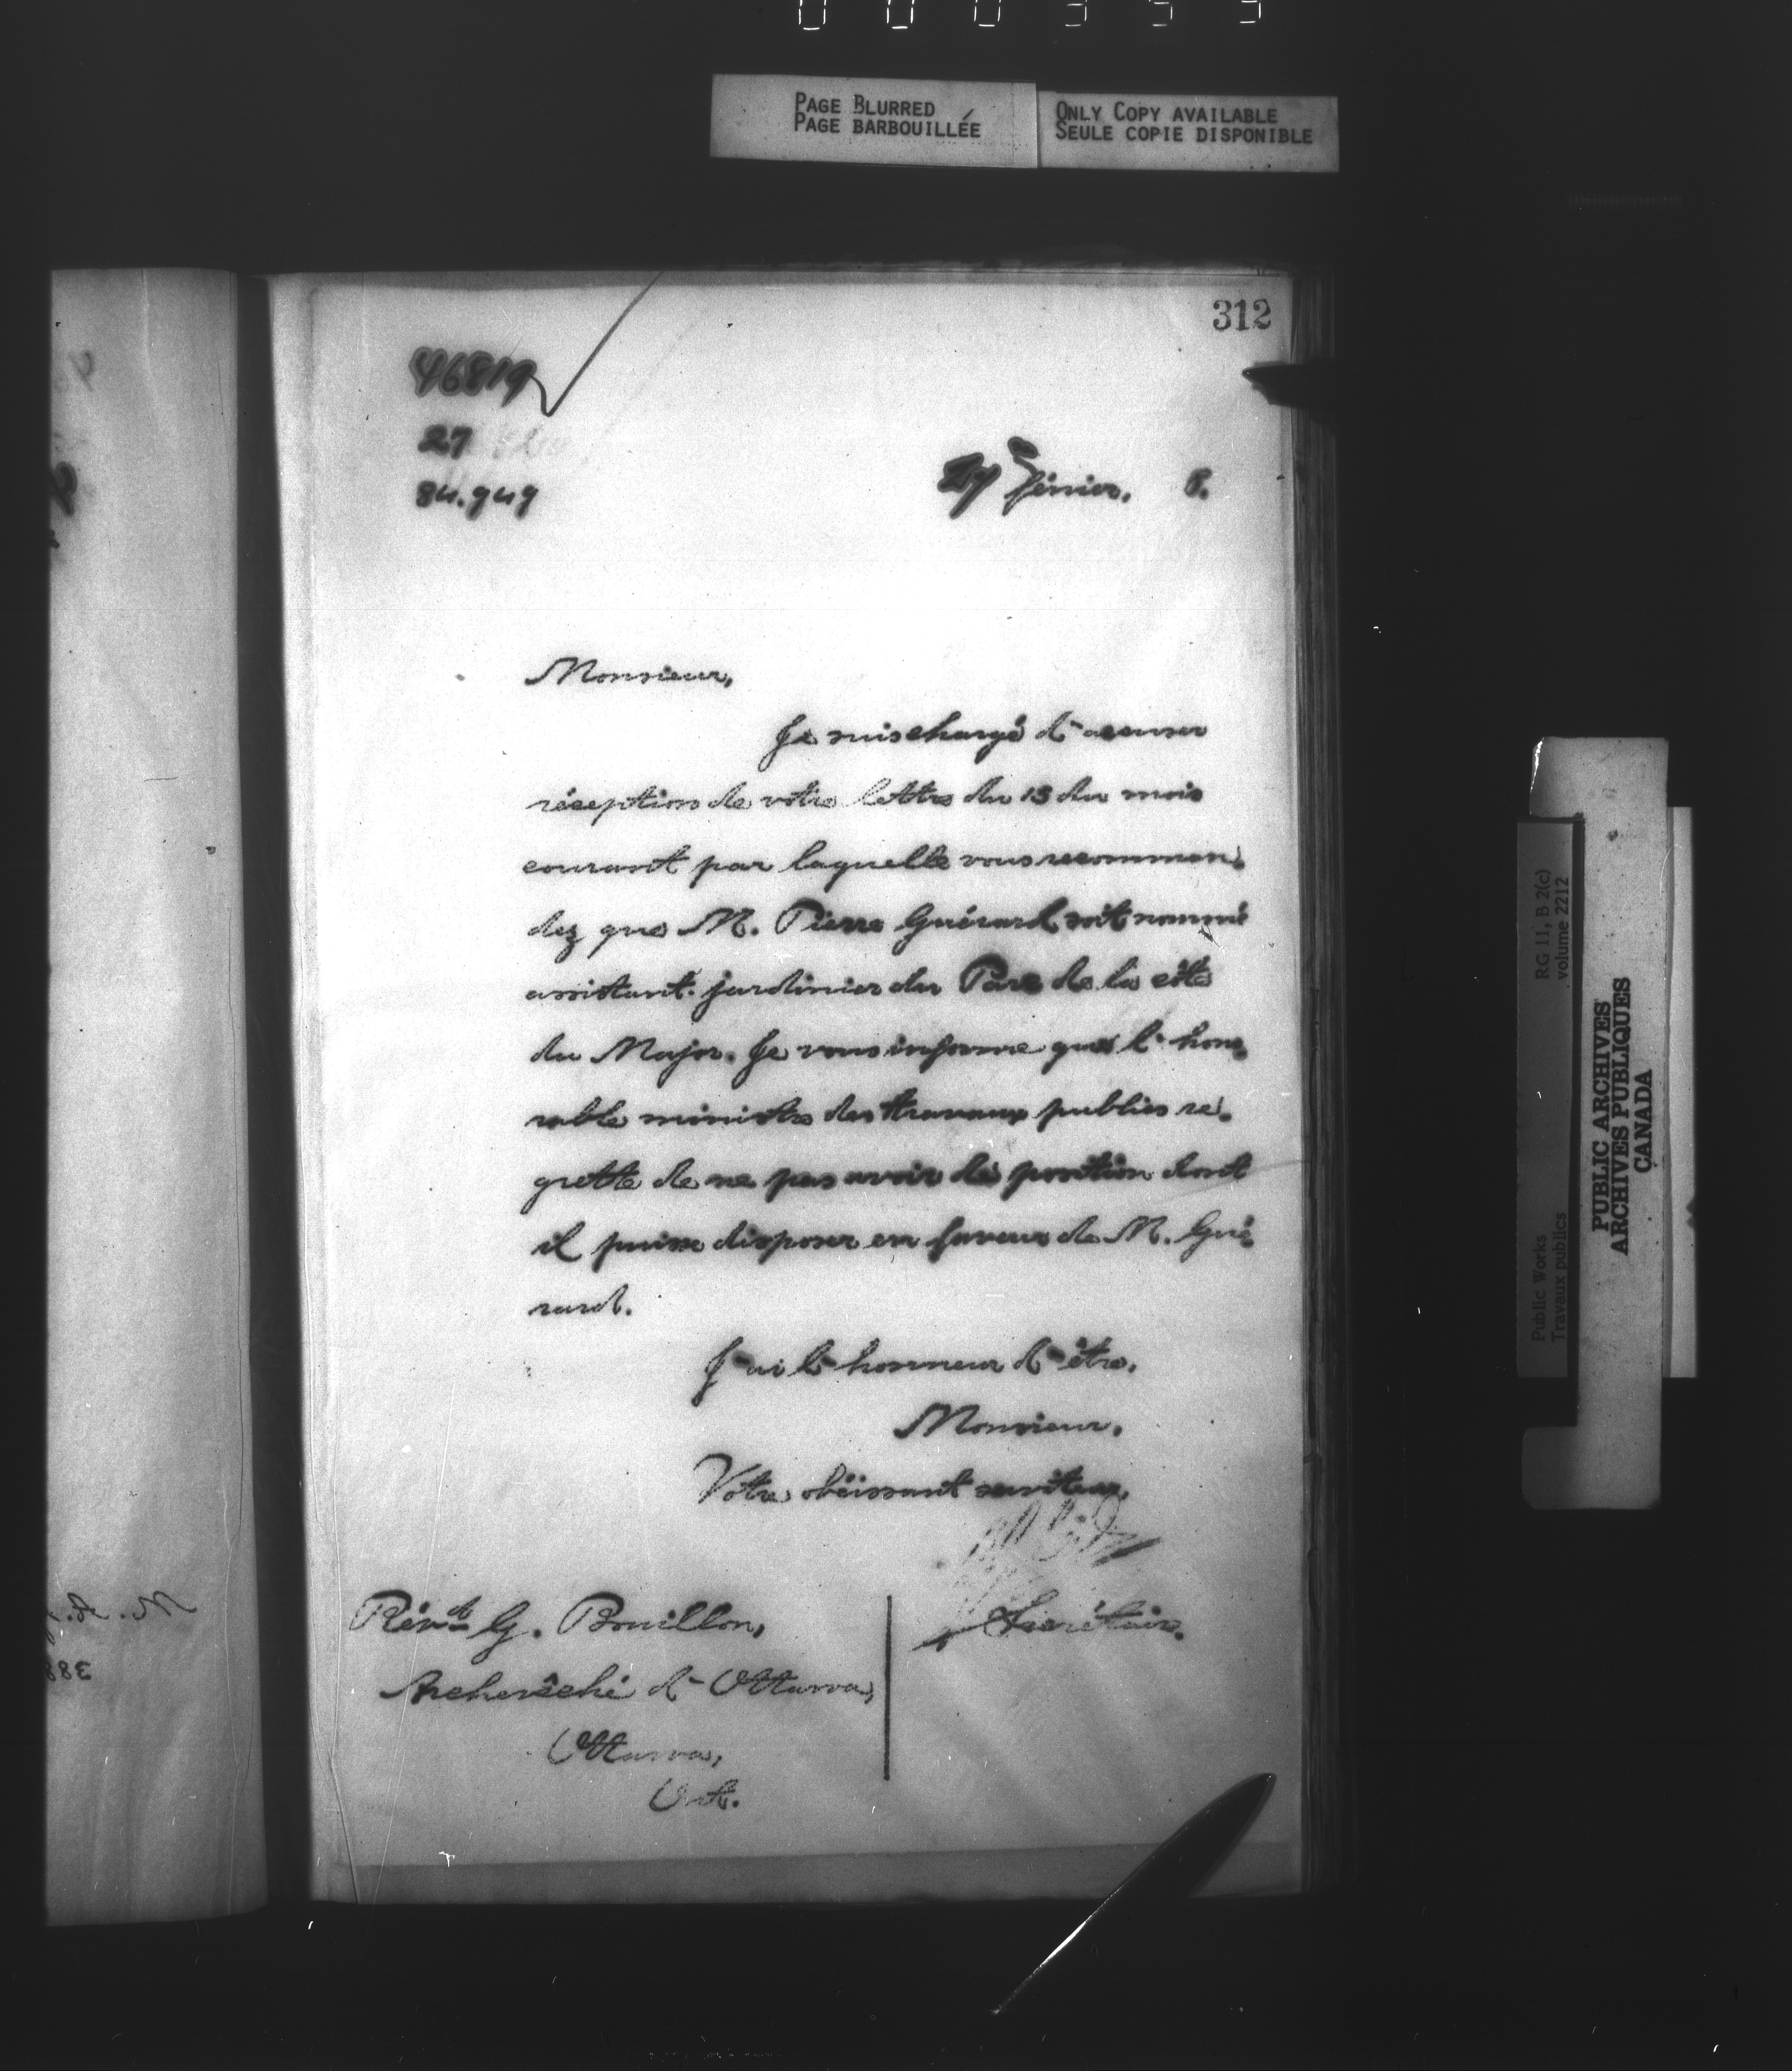 PAGE BLURRED
PAGE BARBOUILLÉE
ONLY COPY AVAILABLE
SEULE COPIE DISPONIBLE
312
46819
27
84.949
27 février. 8.
Monsieur,
Je suis chargé d'accuser
réception de votre lettre du 13 du mois
courant par laquelle vous recomman-
dez que M. Pierre Guérard soit nommé
assistant-jardinier du Parc de la côte
du Major. Je vous informe que l'hono-
rable ministre des travaux publics re-
grette de ne pas avoir de position dont
il puisse disposer en faveur de M. Gué-
rard.
J'ai l'honneur d'être,
Monsieur,
Votre obéissant serviteur,
Secrétaire.
Révd G. Bouillon,
Archevêché d'Ottawa,
Ottawa,
Ont.
RG 11, B 2(c)
volume 2212
Public Works
Travaux publics
PUBLIC ARCHIVES
ARCHIVES PUBLIQUES
CANADA